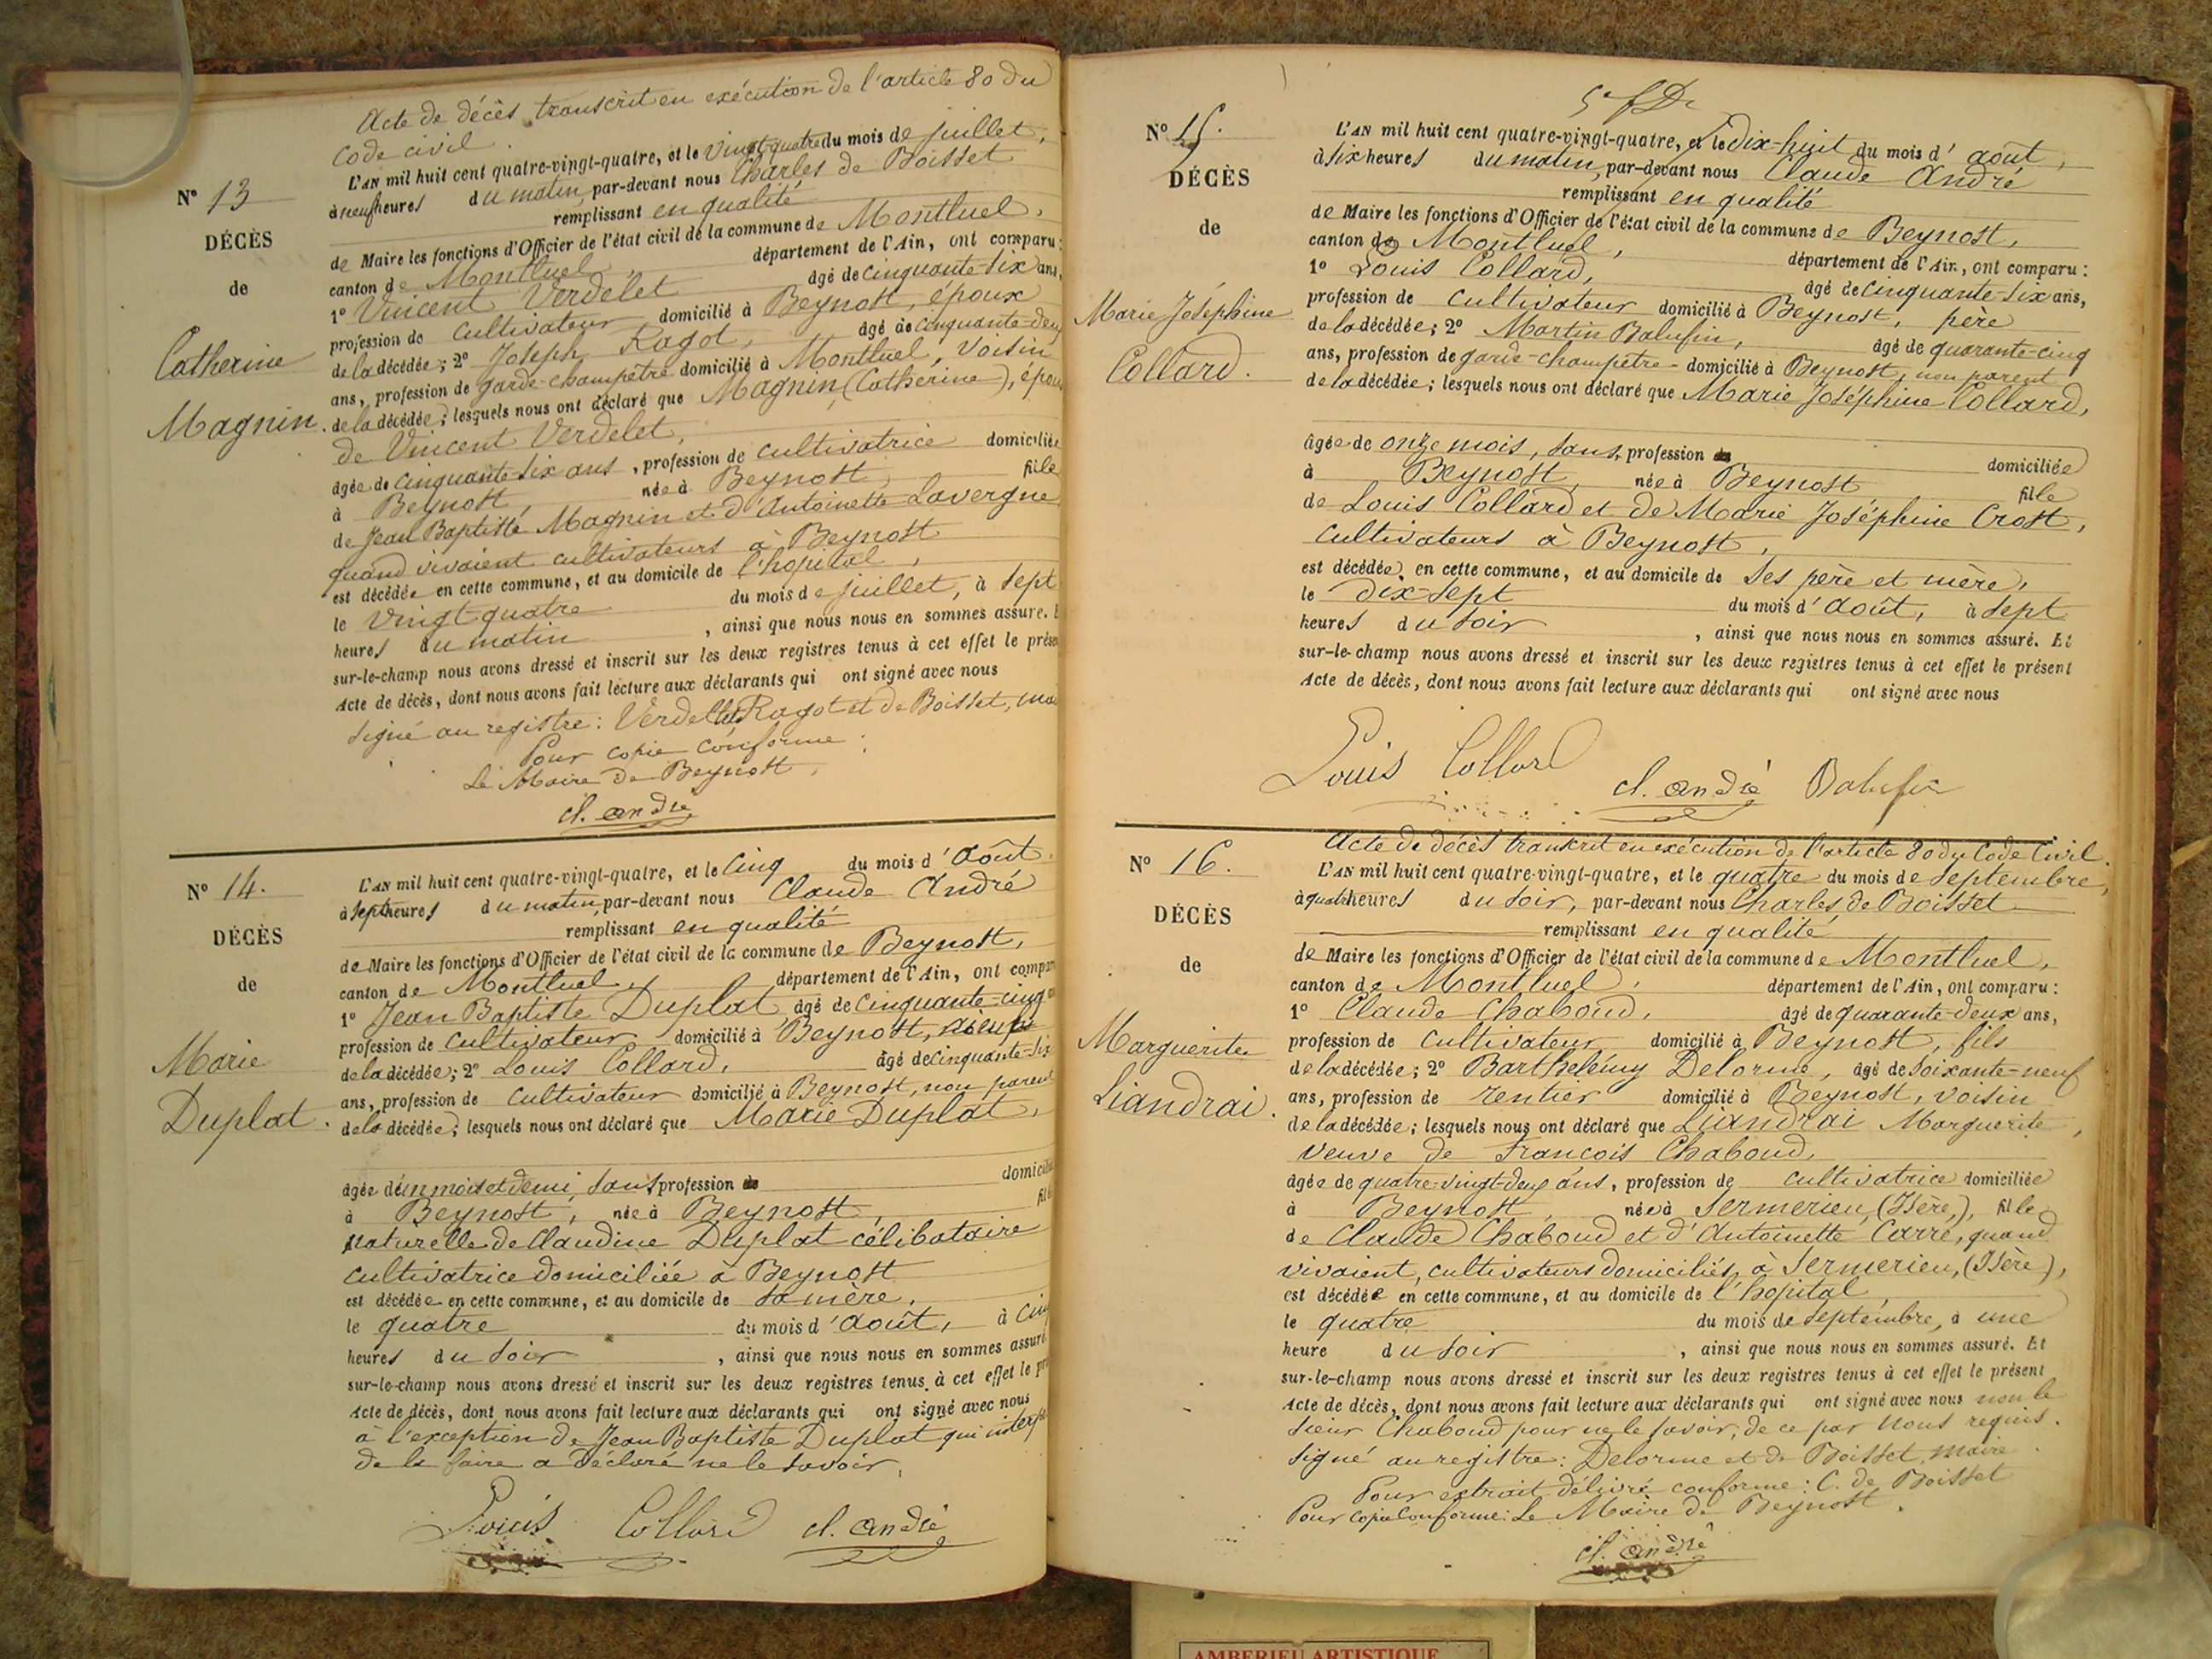 Acte de décès transcrit en exécution de l'article 80 du
Code civil.
N° 13
DÉCÈS
de
Catherine
Magnin.
L'AN mil huit cent quatre-vingt-quatre, et le vingt-quatre du mois de juillet,
à neuf heures du matin, par-devant nous Charles de Boisset
remplissant en qualité
de Maire les fonctions d'Officier de l'état civil de la commune de Montluel,
canton de Montluel, département de l'Ain, ont comparu :
1° Vincent Verdelet âgé de cinquante-six ans,
profession de cultivateur domicilié à Beynost, époux
de la décédée ; 2° Joseph Ragot, âgé de cinquante-deux
ans, profession de garde-champêtre domicilié à Montluel, voisin
de la décédée ; lesquels nous ont déclaré que Magnin (Catherine), épou
de Vincent Verdelet,
âgée de cinquante-six ans, profession de cultivatrice domiciliée
à Beynost, née à Beynost, fille
de Jean Baptiste Magnin et d'Antoinette Lavergne
quand vivaient cultivateurs à Beynost
est décédée en cette commune, et au domicile de l'hopital,
le vingt-quatre du mois de juillet, à sept
heures du matin, ainsi que nous nous en sommes assuré. E
sur-le-champ nous avons dressé et inscrit sur les deux registres tenus à cet effet le prése
Acte de décès, dont nous avons fait lecture aux déclarants qui ont signé avec nous
signé au registre : Verdelet Ragot et de Boisset, mai
Pour copie conforme :
Le Maire de Beynost,
cl. andré
N° 14.
DÉCÈS
de
Marie
Duplat.
L'AN mil huit cent quatre-vingt-quatre, et le cinq du mois d'août,
à sept heures du matin, par-devant nous Claude André
remplissant en qualité
de Maire les fonctions d'Officier de l'état civil de la commune de Beynost,
canton de Montluel, département de l'Ain, ont compar
1° Jean Baptiste Duplat âgé de cinquante-cinq
profession de cultivateur domicilié à Beynost,
de la décédée ; 2° Louis Collard, âgé de cinquante-six
ans, profession de cultivateur domicilié à Beynost, non parent
de la décédée ; lesquels nous ont déclaré que Marie Duplat,
âgée d'un mois et demi, sans profession de domicilié
à Beynost, née à Beynost, fille
naturelle de Claudine Duplat célibataire
cultivatrice domiciliée à Beynost
est décédée en cette commune, et au domicile de sa mère,
le quatre du mois d'août, à cinq
heures du soir, ainsi que nous nous en sommes assuré
sur-le-champ nous avons dressé et inscrit sur les deux registres tenus à cet effet le pr
Acte de décès, dont nous avons fait lecture aux déclarants qui ont signé avec nous
à l'exception de Jean Baptiste Duplat qui
de le faire a déclaré ne le savoir.
Louis Collard cl. andré
N° 15.
DÉCÈS
de
Marie Joséphine
Collard.
L'AN mil huit cent quatre-vingt-quatre, et le dix-huit du mois d'août,
à six heures du matin, par-devant nous Claude André
remplissant en qualité
de Maire les fonctions d'Officier de l'état civil de la commune de Beynost,
canton de Montluel, département de l'Ain, ont comparu :
1° Louis Collard, âgé de cinquante-six ans,
profession de cultivateur domicilié à Beynost, père
de la décédée ; 2° Martin Balufin, âgé de quarante-cinq
ans, profession de garde-champêtre domicilié à Beynost, non parent
de la décédée ; lesquels nous ont déclaré que Marie Joséphine Collard,
âgée de onze mois, sans profession de domiciliée
à Beynost, née à Beynost fille
de Louis Collard et de Marie Joséphine Crost,
cultivateurs à Beynost,
est décédée en cette commune, et au domicile de ses père et mère,
le dix-sept du mois d'août, à sept
heures du soir, ainsi que nous nous en sommes assuré. Et
sur-le-champ nous avons dressé et inscrit sur les deux registres tenus à cet effet le présent
Acte de décès, dont nous avons fait lecture aux déclarants qui ont signé avec nous
Louis Collard cl. andré Balufin
Acte de décès transcrit en exécution de l'article 80 du Code Civil.
N° 16.
DÉCÈS
de
Marguerite
Liandrai.
L'AN mil huit cent quatre-vingt-quatre, et le quatre du mois de septembre,
à quatre heures du soir, par-devant nous Charles de Boisset
remplissant en qualité
de Maire les fonctions d'Officier de l'état civil de la commune de Montluel,
canton de Montluel, département de l'Ain, ont comparu :
1° Claude Chaboud, âgé de quarante-deux ans,
profession de cultivateur domicilié à Beynost, fils
de la décédée ; 2° Barthelémy Delorme, âgé de soixante-neuf
ans, profession de rentier domicilié à Beynost, voisin
de la décédée ; lesquels nous ont déclaré que Liandrai Marguerite,
veuve de François Chaboud,
âgée de quatre-vingt-deux ans, profession de cultivatrice domiciliée
à Beynost, née à Sermerieu, (Isère), fille
de Claude Chaboud et d'Antoinette Carré, quand
vivaient, cultivateurs domiciliés à Sermerieu, (Isère),
est décédée en cette commune, et au domicile de l'hopital
le quatre du mois de septembre, à une
heure du soir, ainsi que nous nous en sommes assuré. Et
sur-le-champ nous avons dressé et inscrit sur les deux registres tenus à cet effet le présent
Acte de décès, dont nous avons fait lecture aux déclarants qui ont signé avec nous non le
sieur Chaboud pour ne le savoir, de ce par nous requis.
signé au registre : Delorme et de Boisset, maire.
Pour extrait délivré conforme : C. de Boisset
Pour copie conforme : Le Maire de Beynost.
cl. andré
AMBERIEU ARTISTIQUE